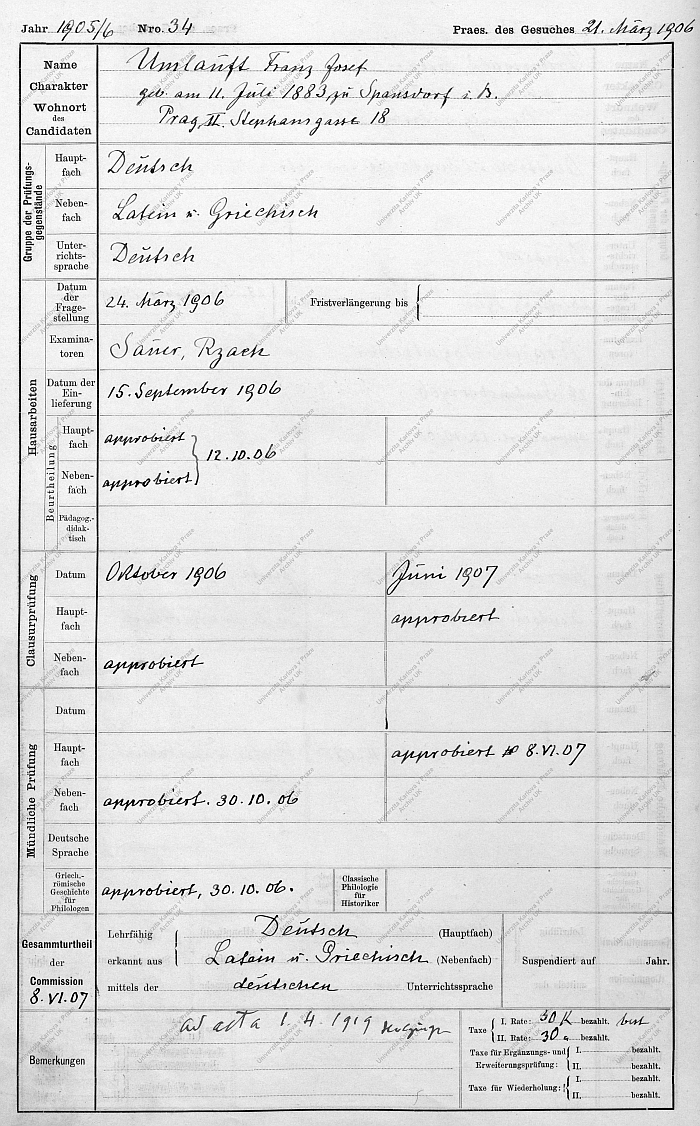 Jahr 1905/6 Nro. 34 Praes. des Gesuches 21. März 1906
Name
Charakter
Wohnort
des
Candidaten
Umlauft Franz Josef
geb. am 11. Juli 1883 zu Spansdorf i. B.
Prag, II. Stephansgasse 18
Gruppe der Prüfungs-
gegenstände
Haupt-
fach
Deutsch
Neben-
fach
Latein u. Griechisch
Unter-
richts-
sprache
Deutsch
Hausarbeiten
Datum
der
Frage-
stellung
24. März 1906
Fristverlängerung bis
Examina-
toren
Sauer, Rzach
Datum der
Ein-
lieferung
15. September 1906
Beurtheilung
Haupt-
fach
approbiert
Neben-
fach
approbiert
12.10.06
Pädagog.-
didak-
tisch
Clausurprüfung
Datum
Oktober 1906
Juni 1907
Haupt-
fach
approbiert
Neben-
fach
approbiert
Mündliche Prüfung
Datum
Haupt-
fach
approbiert 8.VI.07
Neben-
fach
approbiert. 30.10.06
Deutsche
Sprache
Griech.-
römische
Geschichte
für
Philologen
approbiert, 30.10.06.
Classische
Philologie
für
Historiker
Gesammturtheil
der
Commission
8.VI.07
Lehrfähig Deutsch (Hauptfach)
erkannt aus Latein u. Griechisch (Nebenfach)
mittels der deutschen Unterrichtssprache
Suspendiert auf Jahr.
Bemerkungen
ad acta 1.4.1919
Taxe I. Rate: 30 K bezahlt.
II. Rate: 30 bezahlt.
Taxe für Ergänzungs- und I. bezahlt.
Erweiterungsprüfung: II. bezahlt.
Taxe für Wiederholung: I. bezahlt.
II. bezahlt.
Univerzita Karlova v Praze
Archiv UK